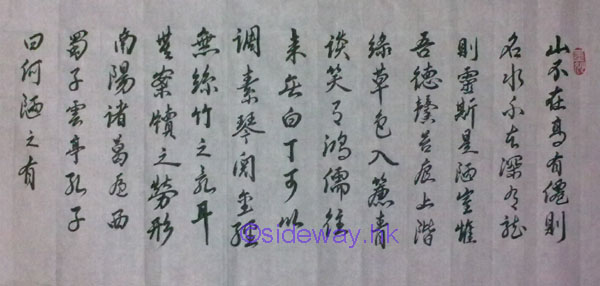 山不在高有僊則
名水不在深有龍
則靈斯是陋室惟
吾德馨苔痕上階
綠草色入簾青
談笑有鴻儒往
来无白丁可以
調素琴閱金經
無絲竹之亂耳
無案牘之勞形
南陽諸葛廬西
蜀子雲亭孔子
曰何陋之有
©sideway.hk